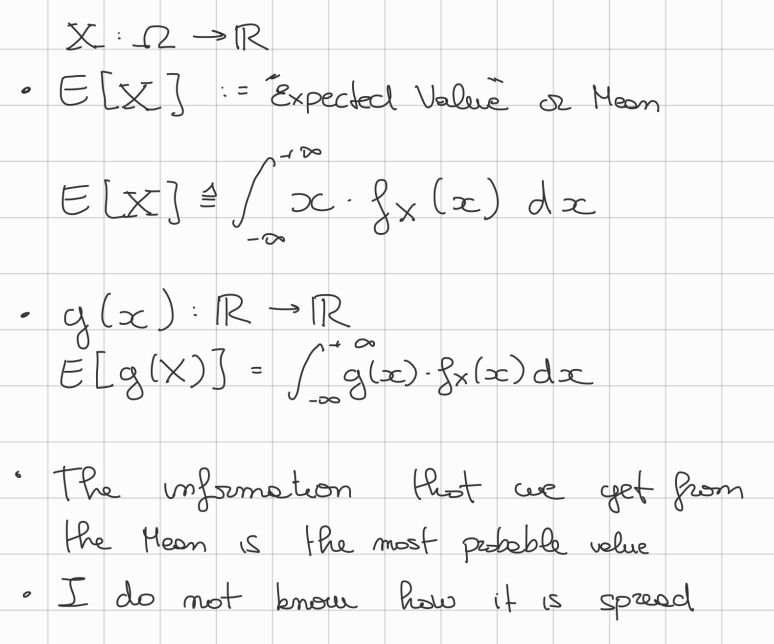 X : Ω → ℝ
• E[X] := "Expected Value" or Mean
E[X] ≜ ∫_{-∞}^{+∞} x · f_X(x) dx
• g(x) : ℝ → ℝ
E[g(X)] = ∫_{-∞}^{+∞} g(x) · f_X(x) dx
• The information that we get from
the Mean is the most probable value
• I do not know how it is spread